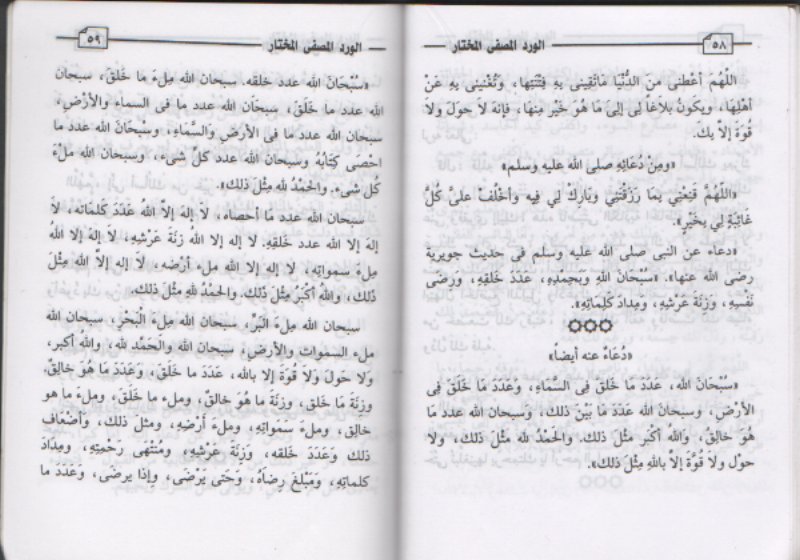 ٥٨
الورد المصفى المختار
اللَّهُمَّ أَعْطِنِي مِنَ الدُّنْيَا مَا تَقِينِي بِهِ فِتْنَتَهَا، وَتُغْنِينِي بِهِ عَنْ
أَهْلِهَا، وَيَكُونُ بَلاَغاً لِي إِلَى مَا هُوَ خَيْرٌ مِنْهَا، فَإِنَّهُ لاَ حَوْلَ وَلاَ
قُوَّةَ إِلاَّ بِكَ.
«وَمِنْ دُعَائِهِ صلى الله عليه وسلم»
«اللَّهُمَّ قَنِّعْنِي بِمَا رَزَقْتَنِي وَبَارِكْ لِي فِيهِ وَأَخْلُفْ عَلَىَّ كُلَّ
غَائِبَةٍ لِي بِخَيْرٍ».
«دعاء عن النبى صلى الله عليه وسلم فى حديث جويرية
رضى الله عنها». «سُبْحَانَ اللهِ وَبِحَمْدِهِ، عَدَدَ خَلْقِهِ، وَرَضَى
نَفْسِهِ، وَزِنَةَ عَرْشِهِ، وَمِدَادَ كَلِمَاتِهِ».
«دُعَاءٌ عنه أيضاً»
«سُبْحَانَ الله، عَدَدَ مَا خَلَقَ فِى السَّمَاءِ، وَعَدَدَ مَا خَلَقَ فِى
الأَرْضِ، وسبحان الله عَدَدَ مَا بَيْنَ ذلك، وَسبحان الله عدد مَا
هُوَ خالِقٌ، وَالله أَكْبَر مثل ذلك. والحَمْدُ لله مثْلَ ذلك، وَلا
حوْل وَلا قُوَّةَ إلاَّ باللهِ مِثْلَ ذلك».
٥٩
الورد المصفى المختار
«سُبْحَانَ الله عدد خلقه. سبحان الله مِلءَ مَا خَلَقَ، سبحان
الله عدد ما خَلَقَ، سبحان الله عدد ما فى السماء والأرْضِ،
سبحان الله عدد ما فى الأرضِ وَالسَّمَاءِ، وسُبْحانَ الله عدد ما
احْصَى كِتَابُهُ وَسبحان الله عدد كلِّ شىء، وسبحان الله مَلْءَ
كُل شىء. والحَمْدُ لله مثْلَ ذلك».
سبحان الله عدد ما أحصاه، لاَ إلهَ إلاَّ اللهُ عَدَدَ كَلمَاته، لاَ
إلهَ إلا الله عدد خَلقهِ. لا إله إلا الله زِنَةَ عَرْشِهِ، لاَ إلهَ إلا الله
ملءَ سَمواتِهِ، لاَ إله إلا الله ملء أرْضه، لاَ إله إلا الله مِثْلَ
ذلكَ، وَاللهُ أَكْبَرُ مثْلَ ذلك. والحَمْدُ لله مثْلَ ذلك».
سبحان الله مِلءَ البَرِّ، سبحان الله ملءَ الْبَحْرِ، سبحان الله
ملء السموات والأرض، سبحان الله والحَمْد لله، والله أكبر،
ولا حَولَ وَلا قُوَّةَ إلا بالله، عَدَدَ ما خَلَقَ، وَعَدَدَ مَا هو خالِقٌ.
وزِنَةَ مَا خَلَقَ، وزِنَةَ مَا هُوَ خالقٌ، وملءَ ما خَلَقَ، وملءَ ما هو
خالق، وملءَ سَمَواتِهِ، وملءَ أرْضِهِ، ومثل ذلك، وأضْعَافِ
ذلك وَعَدَدَ خَلقه، وَزِنَةَ عَرْشِهِ، ومُنْتَهَى رَحْمَتِهِ، ومِدَادَ
كلماتِهِ، ومَبْلَغَ رِضَاهُ، وحَتى يَرْضَى، وإذا يرضَى، وَعَدَدَ ما